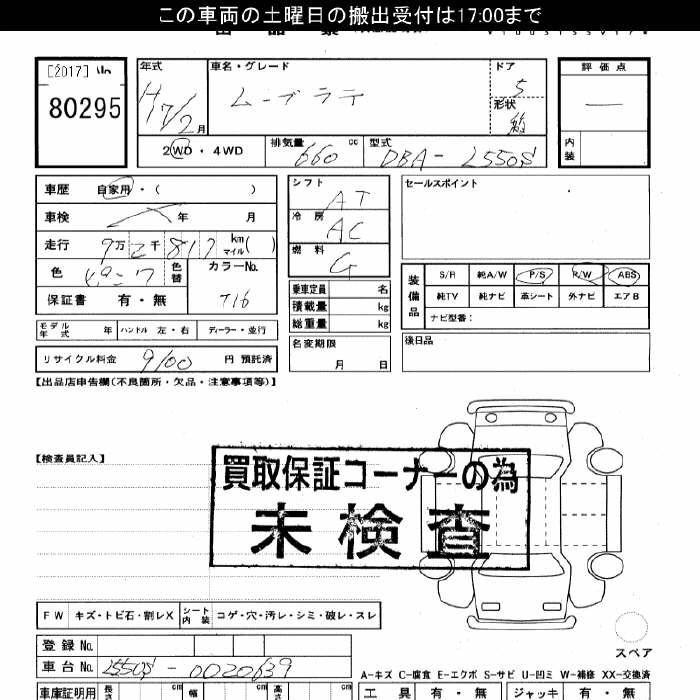 この車両の土曜日の搬出受付は17:00まで
[2017]
80295
年式 H17/2月
車名・グレード ムーブラテ
ドア 5
形状 箱
評価点 —
内装
2WD・4WD
排気量 660 cc
型式 DBA-L550S
車歴 自家用・( )
車検 年 月
走行 9万2千817 km マイル( )
色 ピンク 色替
カラーNo. T16
保証書 有・無
シフト AT
冷房 AC
燃料 G
乗車定員 名
積載量 kg
総重量 kg
セールスポイント
装備品
S/R 純A/W P/S R/W ABS
純TV 純ナビ 革シート 外ナビ エアB
ナビ型番:
モデル年式 年 ハンドル 左・右 ディーラー・並行
名変期限 月 日
後日品
リサイクル料金 9100 円 預託済
【出品店申告欄(不良箇所・欠品・注意事項等)】
【検査員記入】
買取保証コーナーの為
未検査
FW キズ・トビ石・割レX シート内装 コゲ・穴・汚レ・シミ・破レ・スレ
スペア
登録No.
車台No. L550S-0020639
A-キズ C-腐食 E-エクボ S-サビ U-凹ミ W-補修 XX-交換済
車庫証明用 長さ cm 幅 cm 高さ cm
工具 有・無 ジャッキ 有・無